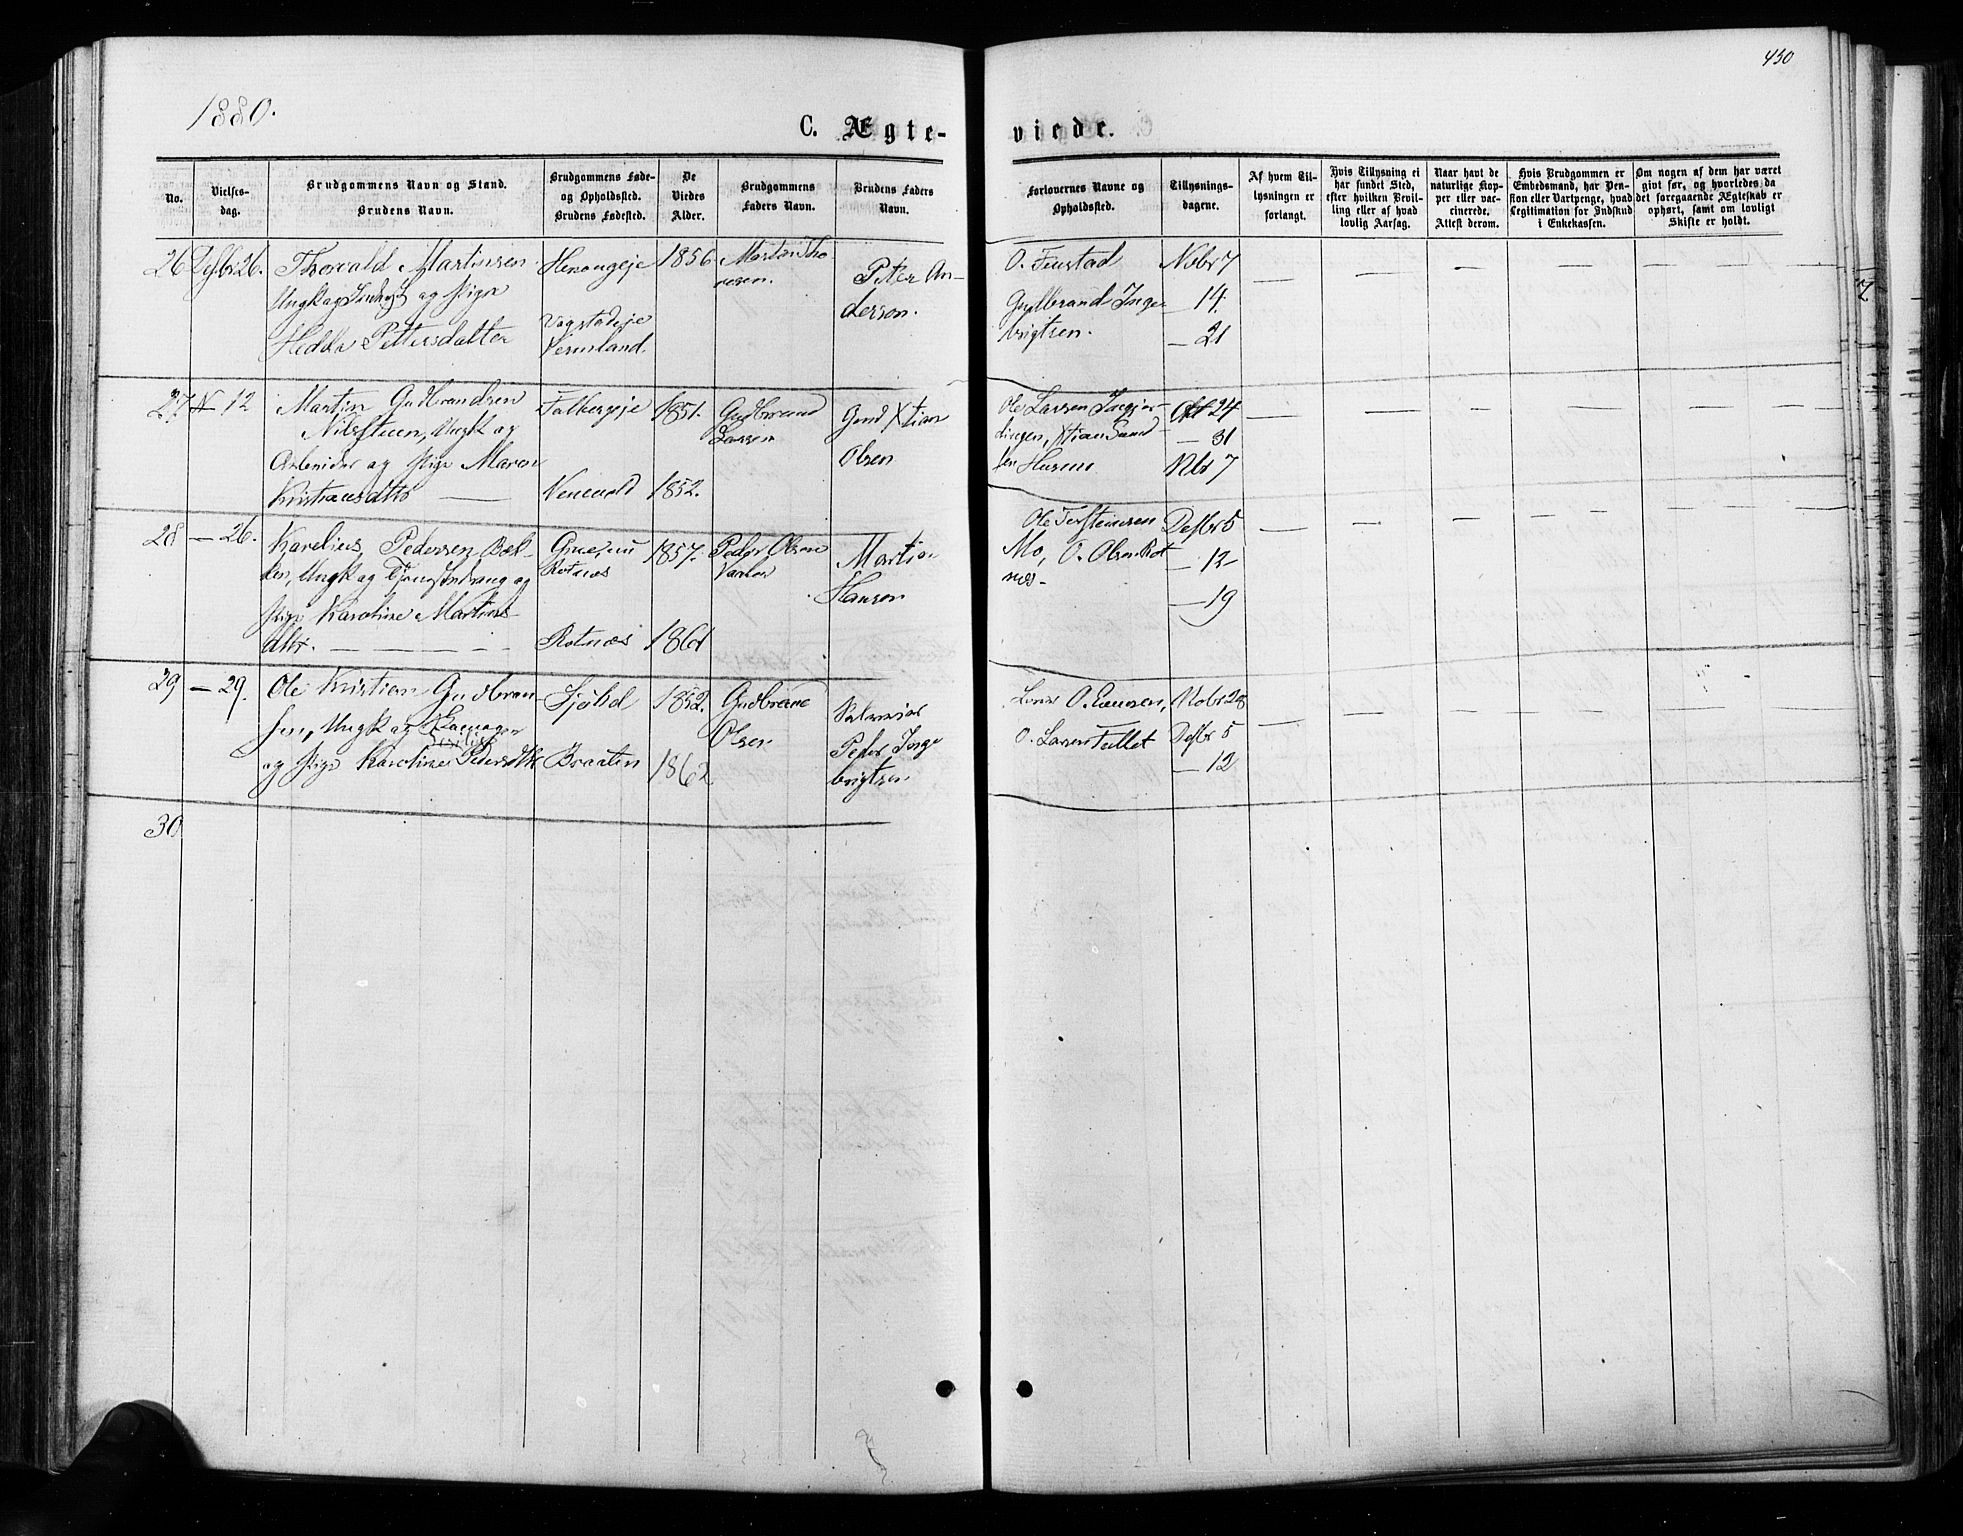 450
1880.
C. Ægte-
viede.
No.
Vielses-
dag.
Brudgommens Navn og Stand.
Brudens Navn.
Brudgommens Føde-
og Opholdssted.
Brudens Fødested.
De
Viedes
Alder.
Brudgommens
Faders Navn.
Brudens Faders
Navn.
Forlovernes Navne og
Opholdssted.
Tillysnings-
dagene.
Af hvem Til-
lysningen er
forlangt.
Hvis Tillysning ei
har fundet Sted,
efter hvilken Bevil-
ling eller af hvad
lovlig Aarsag.
Naar havt de
naturlige Kop-
per eller vac-
cinerede.
Attest derom.
Hvis Brudgommen er
Embedsmand, har Pen-
sion eller Vartpenge, hvad
Legitimation for Indskud
i Enkekassen.
Om nogen af dem har været
givt før, og hvorledes da
det foregaaende Ægteskab er
ophørt, samt om lovligt
Skifte er holdt.
26
26.
Thorvald Martinsen
Ungk og og Pige
Hedda Pettersdatter
1856
Peter An-
derson.
Vermland.
O. Finstad
Gullbrand Inge
brigtsen.
Nvbr 7
— 14.
— 21
27
N 12
Martin Gudbrandsen
Nilsstuen, Ungk og
Arbeider og Pige Maren
Kristiansdtr —
1851.
1852.
Gudbrand
Larsen
Gmd Xtian
Olsen
Ole Larsen
Okt 24
— 31
Nbr 7
28
— 26.
Karelius Pedersen Bek-
ken, Ungk og og
Pige Karoline Martins-
dtr. — — — —
Grue, nu
Rotnæs
Rotnæs
1857.
1861
Peder Olsen
Martin
Hansen
Ole Torsteinsen
Mo, O. Olsen Rot
næs-
Desbr 5
— 12-
— 19
29
— 29.
Ole Kristian Gudbran
sen, Ungk og
og Pige Karoline Pedersdtr
Braaten
1852.
1862
Gudbrand
Olsen
Peder Inge
brigtsen
O. Larsen
Nobr 28
Desbr 5
— 12
30